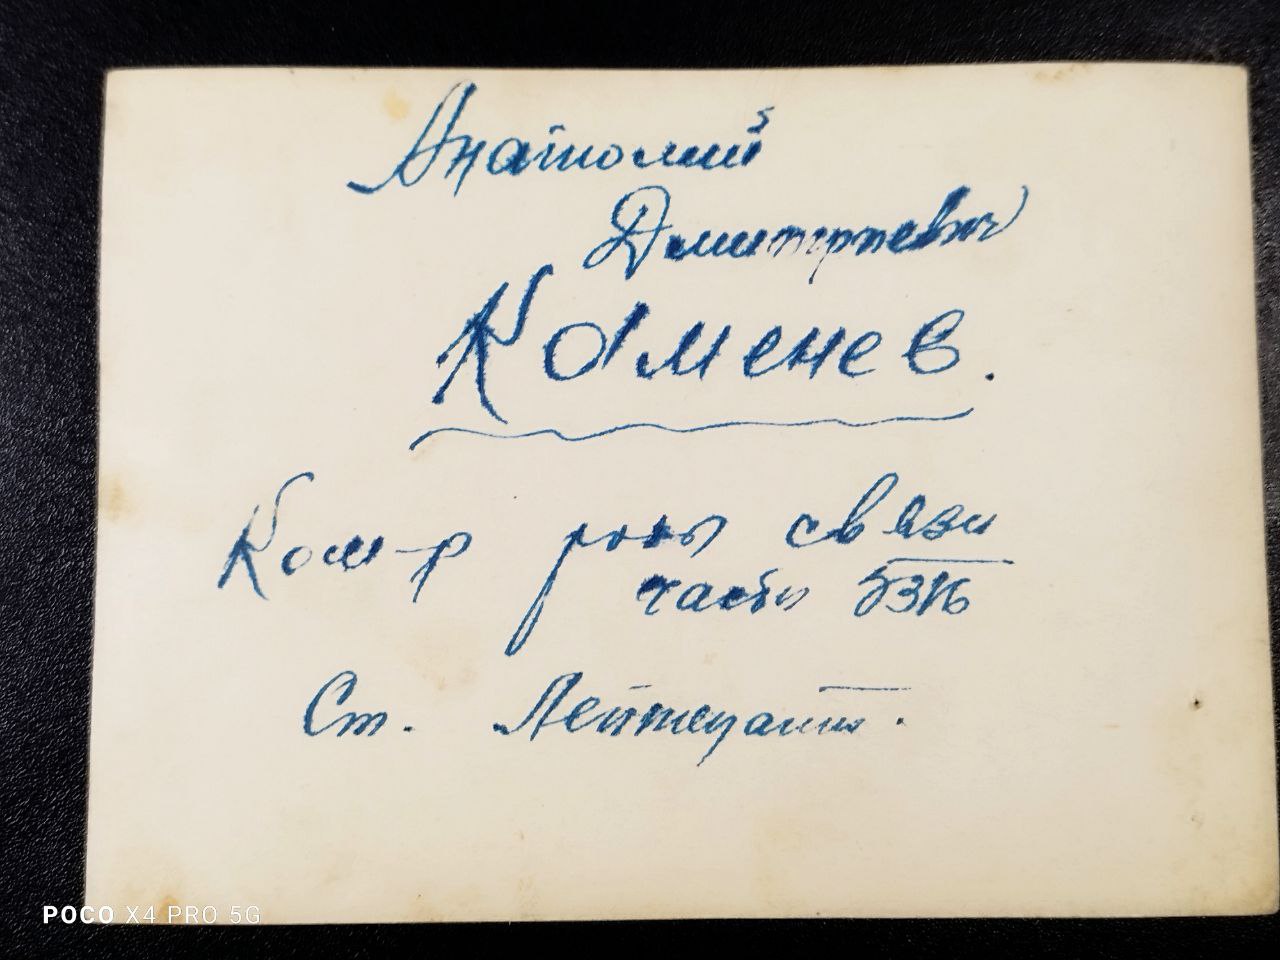 Анатолий
Дмитриевич
Каменев.
Ком-р роты связи
части
Ст. Лейтенант.
POCO X4 PRO 5G